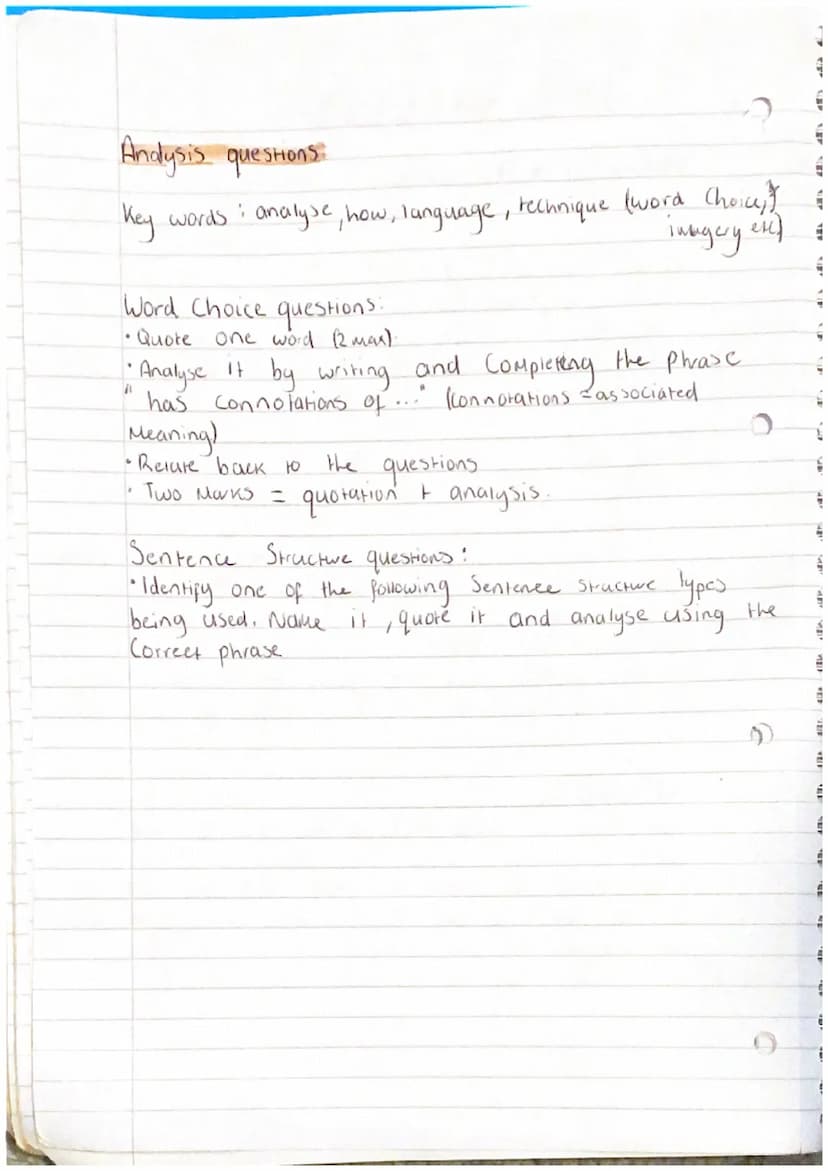 Analysis questions:
Key words : analyse, how, language, technique (word Choice,
imagery etc)
Word Choice questions:
• Quote one word (2 max)
• Analyse it by writing and Completing the phrase
" has connotations of ..." (connotations = associated
Meaning)
• Relate back to the questions
• Two Marks = quotation + analysis.
Sentence Structure questions:
• Identify one of the following Sentence Structure types
being used. Name it, quote it and analyse using the
Correct phrase